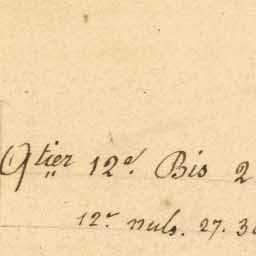 Qtier 12e. Bis 2
12e. nuls. 27. 30